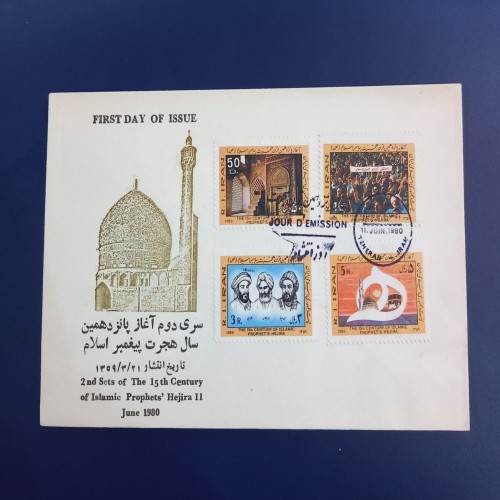 FIRST DAY OF ISSUE
سری دوم آغاز پانزدهمین
سال هجرت پیغمبر اسلام
تاریخ انتشار ۱۳۵۹/۳/۲۱
2nd Sets of The 15th Century
of Islamic Prophets' Hejira 11
June 1980
50
D.
R.I.IRAN
1980
THE 15th CENTURY OF ISLAMIC
R.I.IRAN
JOUR D'EMISSION
روز انتشار
11. JUIN. 1980
TEHERAN
IRAN
R.I.IRAN
3 R.
۳ ریال
1980
THE 15th CENTURY OF ISLAMIC
PROPHET'S HEJIRA
R.I.IRAN
5 R.
۵ ریال
1980
THE 15th CENTURY OF ISLAMIC
PROPHET'S HEJIRA